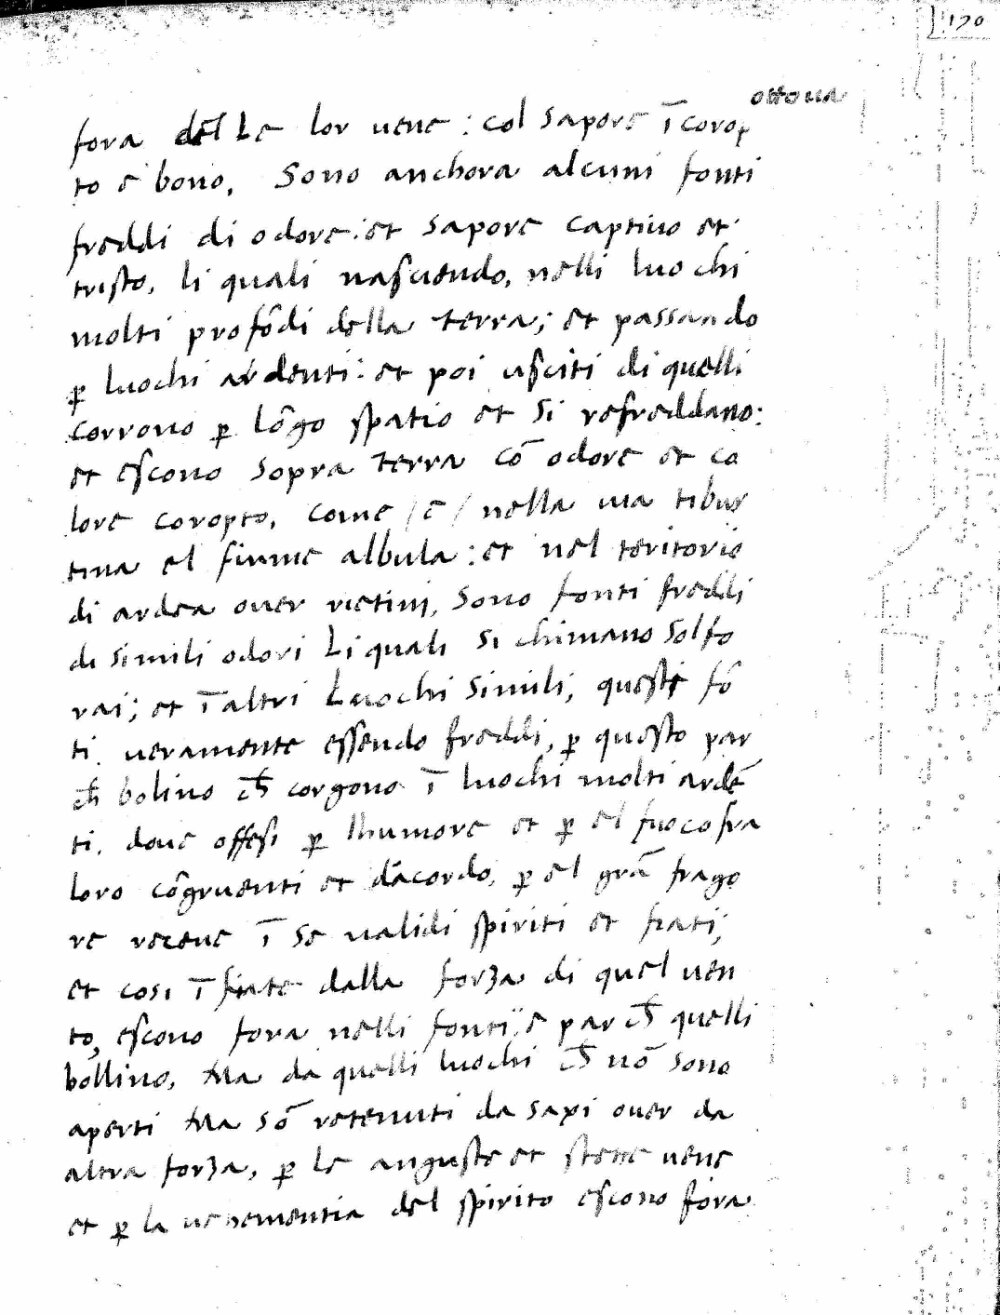 170
ottoua
fora delLe lor uene : col sapore ī corop
to e bono. Sono anchora alcuni fonti
freddi di odore : et sapore captiuo et
tristo. li quali nascendo, nelli luochi
molti profōdi della terra; et passando
ꝑ luochi ardenti : et poi usciti di quelli
corrono ꝑ lōgo spatio et si refreddano :
et escono sopra terra cō odore et ca
lore coropto, come / e / nella uia tibur
tina el fiume albula : et nel teritorio
di ardea ouer rietini, sono fonti freddi
di simili odori Li quali si chimano solfo
rai ; et ī altri Luochi simili, questi fō
ti. ueramente essendo freddi, ꝑ questo par
ch̄ bolino ch̄ corgono ī luochi molti ardē
ti. doue offesi ꝑ lhumore et ꝑ el fuoco fra
loro cōgruenti et dacordo, ꝑ el grā frago
re receue ī se ualidi spiriti et frati ;
et cosi ī fiate dalla forza di quel uen
to, escono fora nelli fonti : e par ch̄ quelli
bollino, Ma da quelli luochi ch̄ nō sono
aperti Ma sō retenuti da saxi ouer da
altra forza, ꝑ le anguste et strette uene
et ꝑ la uehementia del spirito escono fora